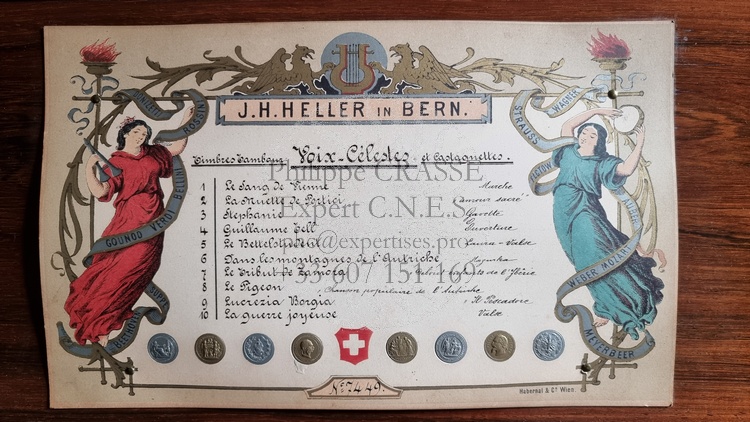 J.H.HELLER IN BERN.
Timbres Tambour Voix-Célestes et Castagnettes.
1 Le Sang de Vienne Marche
2 La Muette de Portici (amour sacré)
3 Stephanie Gavotte
4 Guillaume Tell Ouverture
5 Le Bettelstudent Laura-Valse
6 Dans les montagnes de l'Autriche Mazurka
7 Le Tribut de Zamora de l'Ibérie
8 Le Pigeon Chanson populaire de l'Autriche
9 Lucrezia Borgia Il Pescadore
10 La guerre joyeuse Valse
Philippe CRASSE
Expert C.N.E.S.
@expertises.pro
+33 607 151 169
ROSSINI
GOUNOD VERDI BELLINI
STRAUSS WAGNER
WEBER MOZART
MEYERBEER
No 7449.
Habernal & Co Wien.